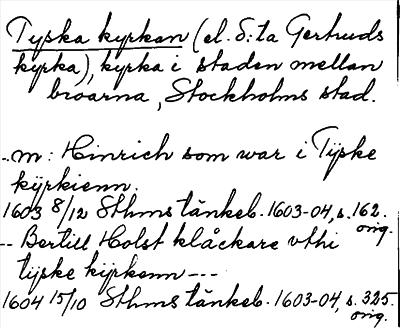 Tyska kyrkan (el. S:ta Gertruds
kyrka), kyrka i staden mellan
broarna, Stockholms stad.
--m: Hinrich som war i Tÿske
kÿrkienn.
1603 8/12 Sthms tänkeb. 1603-04, s. 162.
orig.
-- Bertill Holst klåckare vthi
tÿske kÿrkenn ---
1604 15/10 Sthms tänkeb. 1603-04, s. 325.
orig.